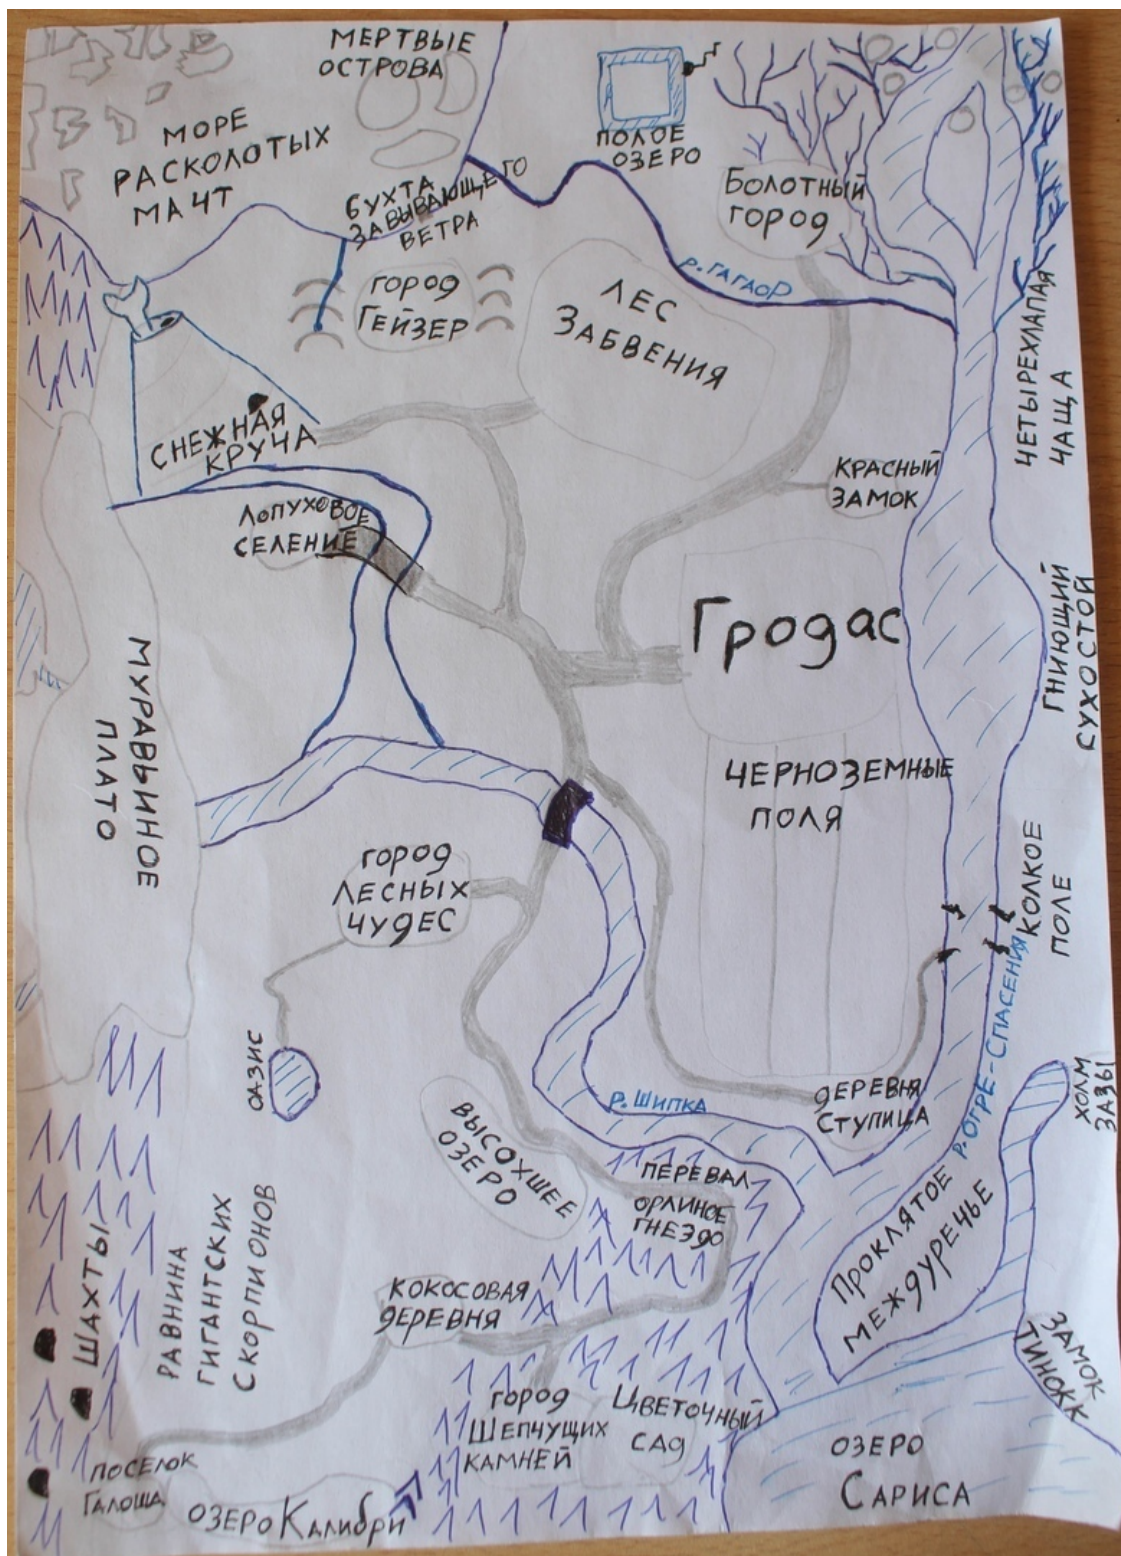 МЕРТВЫЕ
ОСТРОВА
МОРЕ
РАСКОЛОТЫХ
МАЧТ
ПОЛОЕ
ОЗЕРО
БУХТА
ЗАВЫВАЮЩЕГО
ВЕТРА
БОЛОТНЫЙ
ГОРОД
р. ГАГАОР
ГОРОД
ГЕЙЗЕР
ЛЕС
ЗАБВЕНИЯ
ЧЕТЫРЕХЛАПАЯ
ЧАЩА
СНЕЖНАЯ
КРУЧА
КРАСНЫЙ
ЗАМОК
ЛОПУХОВОЕ
СЕЛЕНИЕ
Гродас
ГНИЮЩИЙ
СУХОСТОЙ
МУРАВЬИНОЕ
ПЛАТО
ЧЕРНОЗЕМНЫЕ
ПОЛЯ
ГОРОД
ЛЕСНЫХ
ЧУДЕС
КОЛКОЕ
ПОЛЕ
р. ОГРЕ-СПАСЕНИЯ
ОАЗИС
р. ШИПКА
ДЕРЕВНЯ
СТУПИЦА
ХОЛМ
ЗАЗЫ
ВЫСОХШЕЕ
ОЗЕРО
ПЕРЕВАЛ-
ОРЛИНОЕ
ГНЕЗДО
ПРОКЛЯТОЕ
МЕЖДУРЕЧЬЕ
ШАХТЫ
РАВНИНА
ГИГАНТСКИХ
СКОРПИОНОВ
КОКОСОВАЯ
ДЕРЕВНЯ
ЗАМОК
ТИНОКК
ГОРОД
ШЕПЧУЩИХ
КАМНЕЙ
ЦВЕТОЧНЫЙ
САД
ОЗЕРО
САРИСА
ПОСЕЛОК
ГАЛОША
ОЗЕРО КАЛИБРИ